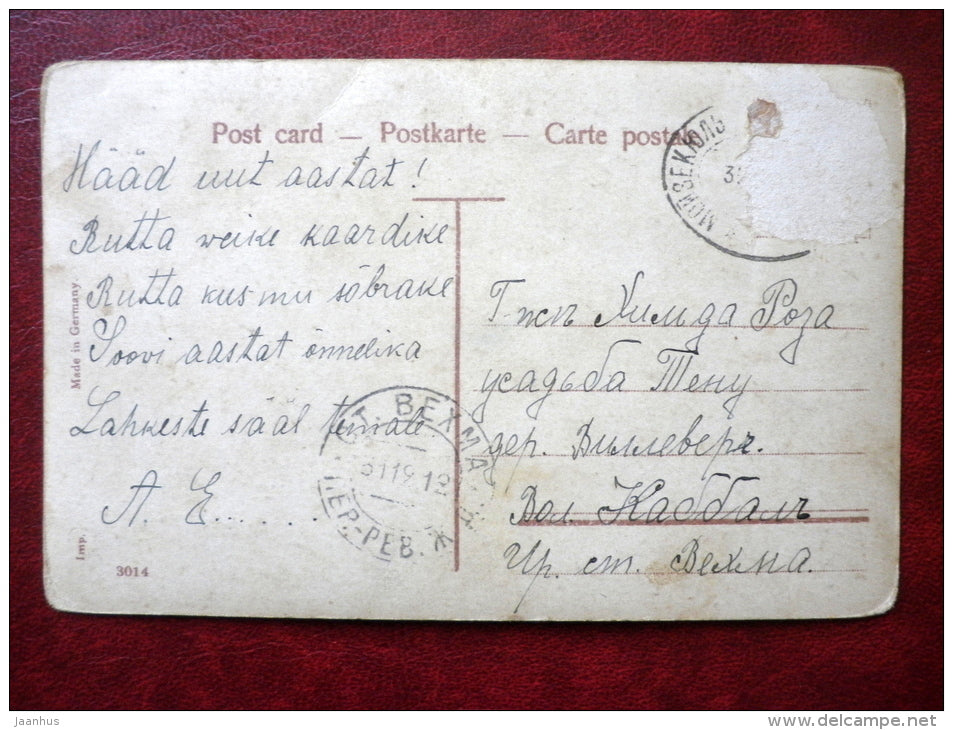 Post card — Postkarte — Carte postale
Hääd uut aastat!
Rutta weike kaardike
Rutta kus mu sõbrake
Soovi aastat õnnelika
Lahkeste sääl temale
A. E.......
Made in Germany.
Imp.
3014
МОЙЗЕКЮЛЬ
СТ. ВЕХМА
31 1 19 12
ПЕР-РЕВ. Ж.
Г-жѣ Хильда Роза
усадьба Тену
дер. Виллевере.
Вол. Каббалъ
Чр. ст. Вехма.
jaanhus
www.delcampe.net